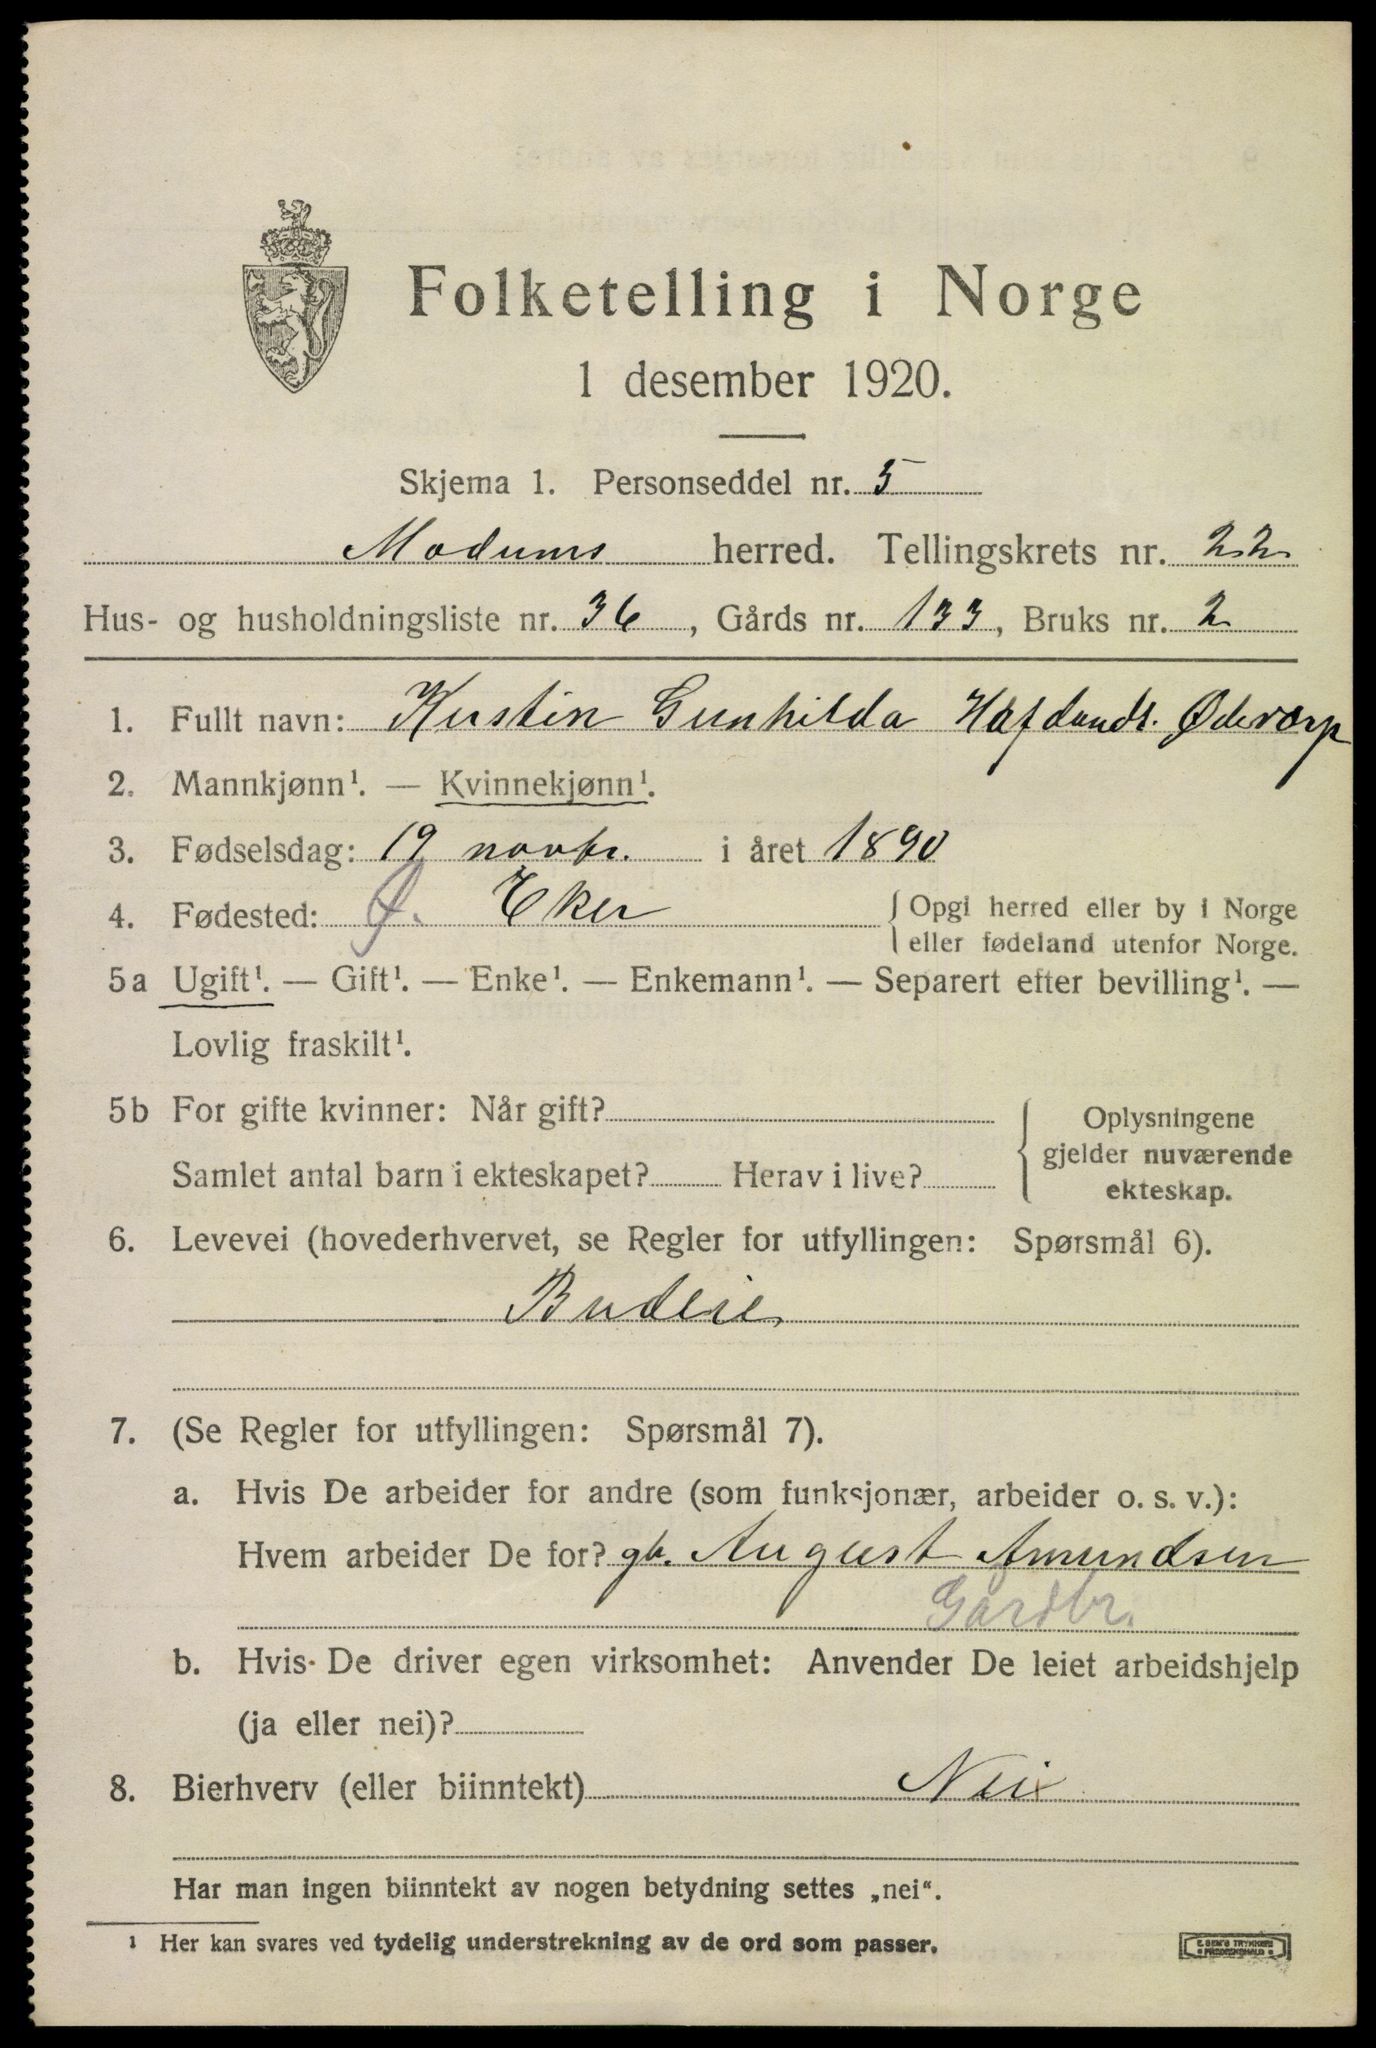 Folketelling i Norge
1 desember 1920.
Skjema 1. Personseddel nr. 5
Modums herred. Tellingskrets nr. 22
Hus- og husholdningsliste nr. 36, Gårds nr. 133, Bruks nr. 2
1. Fullt navn: Kirstin Gunhilda Øderorp
2. Mannkjønn¹. — Kvinnekjønn¹.
3. Fødselsdag: 19 novbr. i året 1890
4. Fødested: Ø. Eker { Opgi herred eller by i Norge
eller fødeland utenfor Norge.
5a Ugift¹. — Gift¹. — Enke¹. — Enkemann¹. — Separert efter bevilling¹. —
Lovlig fraskilt¹.
5b For gifte kvinner: Når gift?
Samlet antal barn i ekteskapet? Herav i live?
{ Oplysningene
gjelder nuværende
ekteskap.
6. Levevei (hovederhvervet, se Regler for utfyllingen: Spørsmål 6).
Budeie
7. (Se Regler for utfyllingen: Spørsmål 7).
a. Hvis De arbeider for andre (som funksjonær, arbeider o. s. v.):
Hvem arbeider De for? gb. August Amundsen
Gardbr.
b. Hvis De driver egen virksomhet: Anvender De leiet arbeidshjelp
(ja eller nei)?
8. Bierhverv (eller biinntekt) Nei
Har man ingen biinntekt av nogen betydning settes „nei“.
¹ Her kan svares ved tydelig understrekning av de ord som passer.